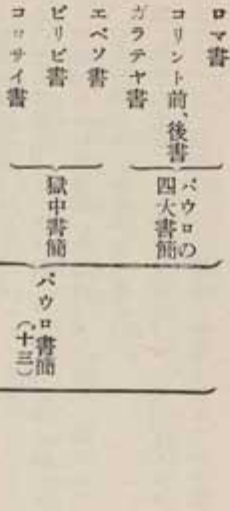 ロマ書
コリント前、後書
ガラテヤ書
エペソ書
ピリピ書
コロサイ書
パウロの
四大書簡
獄中書簡
パウロ書簡
(十三)